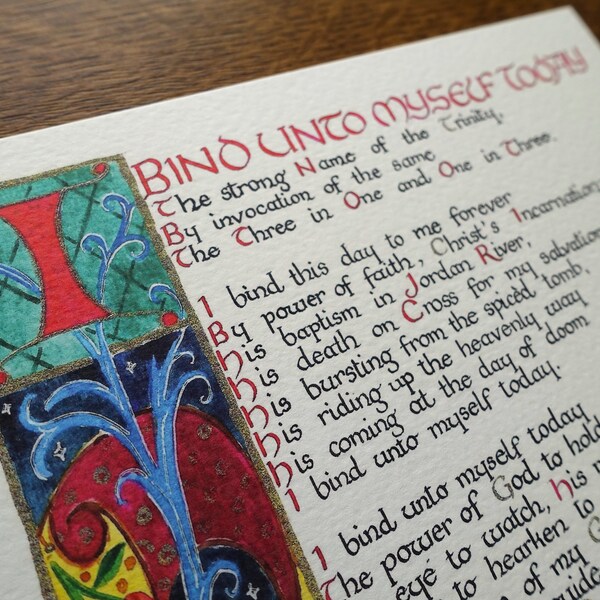 I
BIND UNTO MYSELF TODAY
The strong Name of the Trinity,
By invocation of the same
The Three in One and One in Three.
I bind this day to me forever
By power of faith, Christ's Incarnation
his baptism in Jordan River,
his death on Cross for my salvation
his bursting from the spicèd tomb,
his riding up the heavenly way
his coming at the day of doom
I bind unto myself today.
I bind unto myself today
The power of God to hold
eye to watch, his
to hearken to
of my
guide